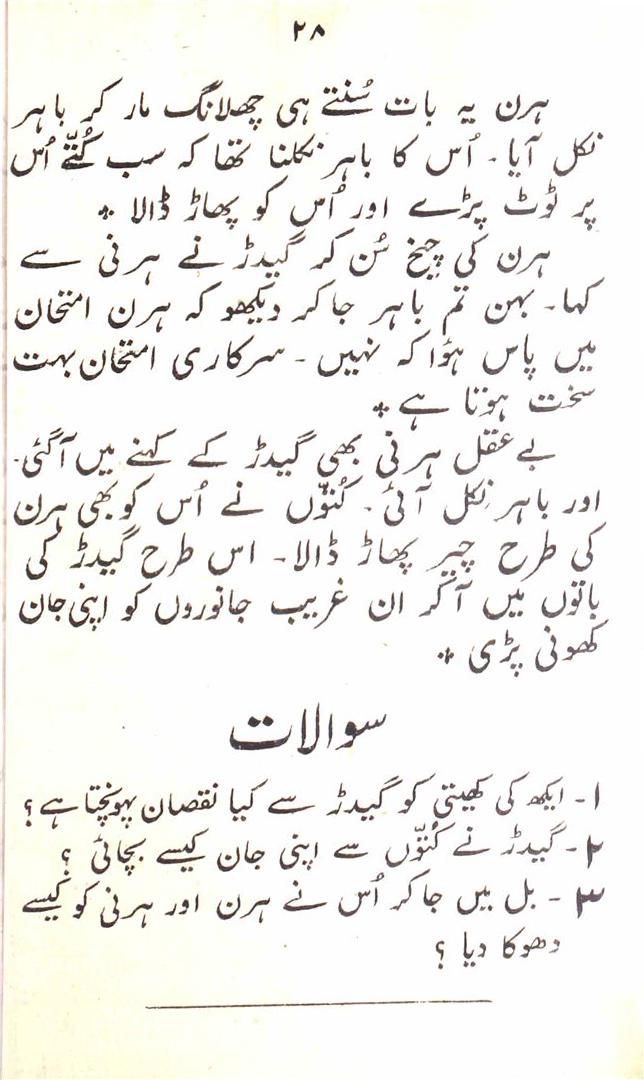 ۲۸
ہرن یہ بات سُنتے ہی چھلانگ مار کر باہر
نکل آیا۔ اُس کا باہر نکلنا تھا کہ سب کُتّے اُس
پر ٹوٹ پڑے اور اُس کو پھاڑ ڈالا ٭
ہرن کی چیخ سُن کر گیدڑ نے ہرنی سے
کہا۔ بہن تم باہر جا کر دیکھو کہ ہرن امتحان
میں پاس ہؤا کہ نہیں۔ سرکاری امتحان بہت
سخت ہوتا ہے ٭
بے عقل ہرنی بھی گیدڑ کے کہنے میں آگئی۔
اور باہر نِکل آئی۔ کُتّوں نے اُس کو بھی ہرن
کی طرح چیر پھاڑ ڈالا۔ اس طرح گیدڑ کی
باتوں میں آکر ان غریب جانوروں کو اپنی جان
کھونی پڑی ٭
سوالات
۱۔ ایکھ کی کھیتی کو گیدڑ سے کیا نقصان پہونچتا ہے؟
۲۔ گیدڑ نے کُتّوں سے اپنی جان کیسے بچائی ؟
۳۔ بل میں جاکر اُس نے ہرن اور ہرنی کو کیسے
دھوکا دیا ؟